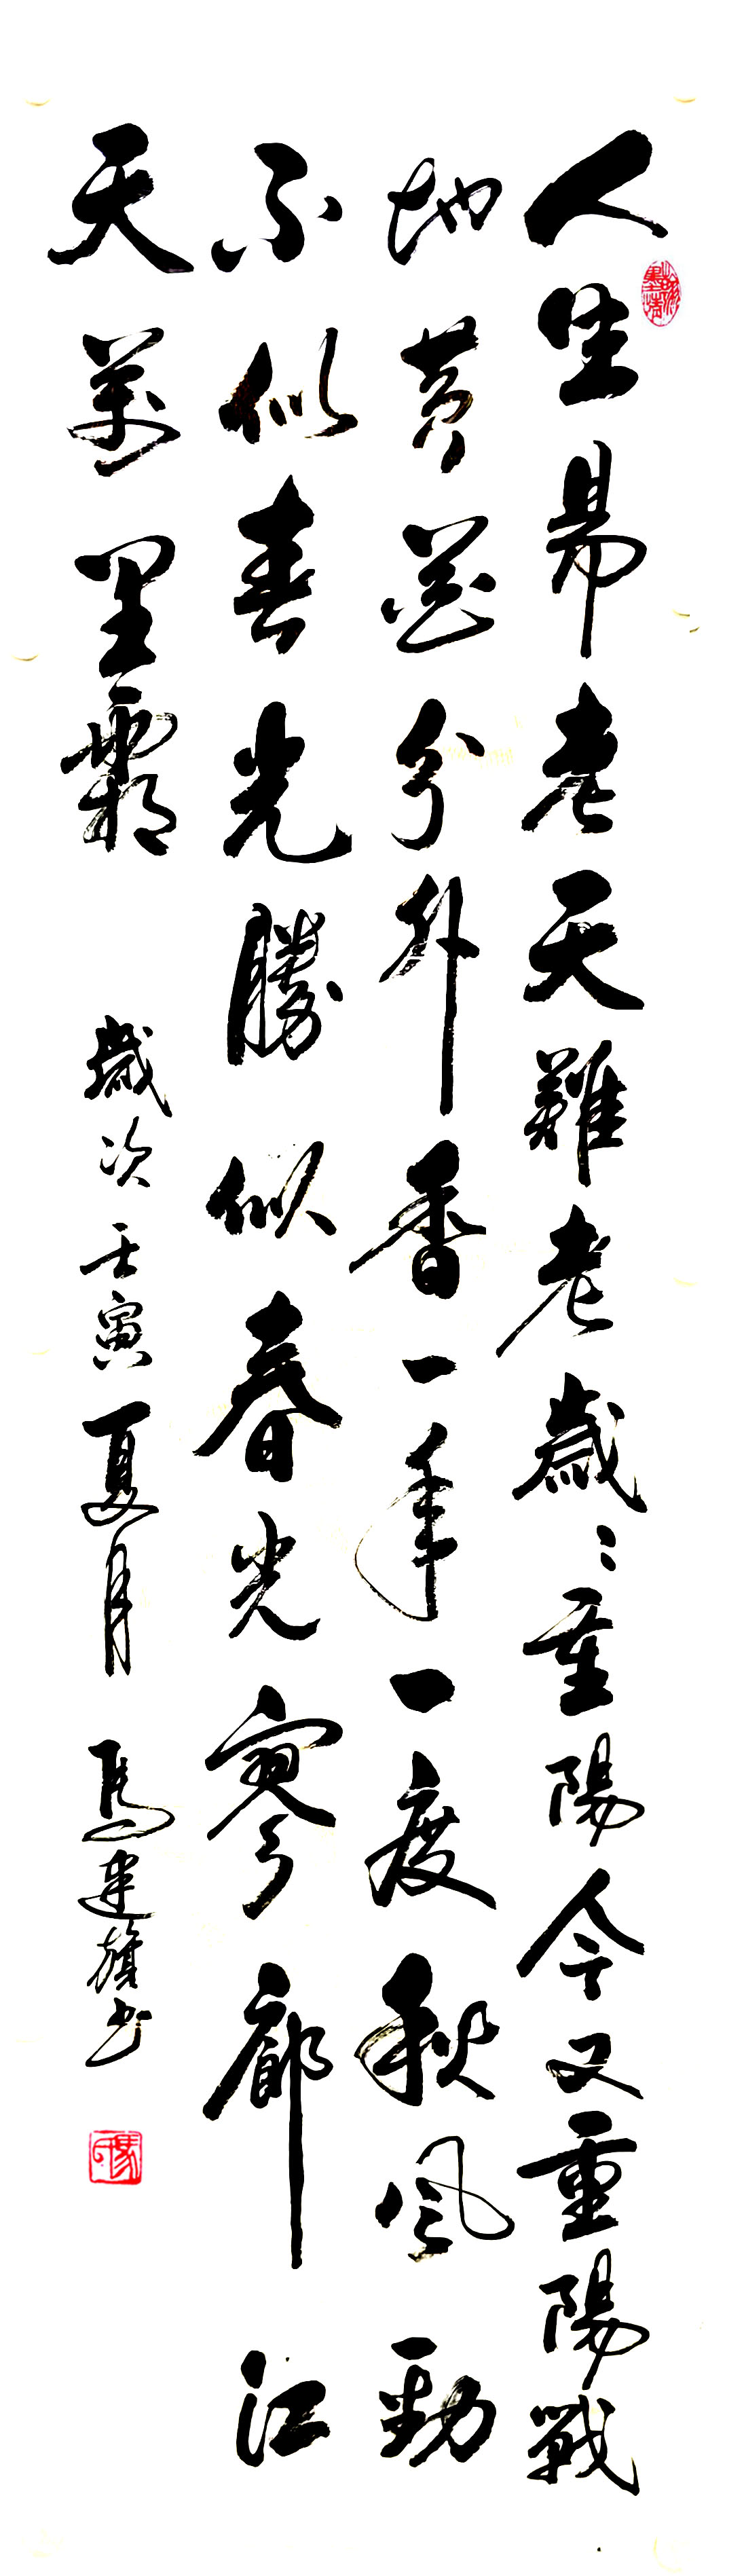 人生易老天難老歲〻重陽今又重陽戰
地黄花分外香一年一度秋風勁
不似春光勝似春光寥廓江
天萬里霜
歲次壬寅夏月
馬建旗书